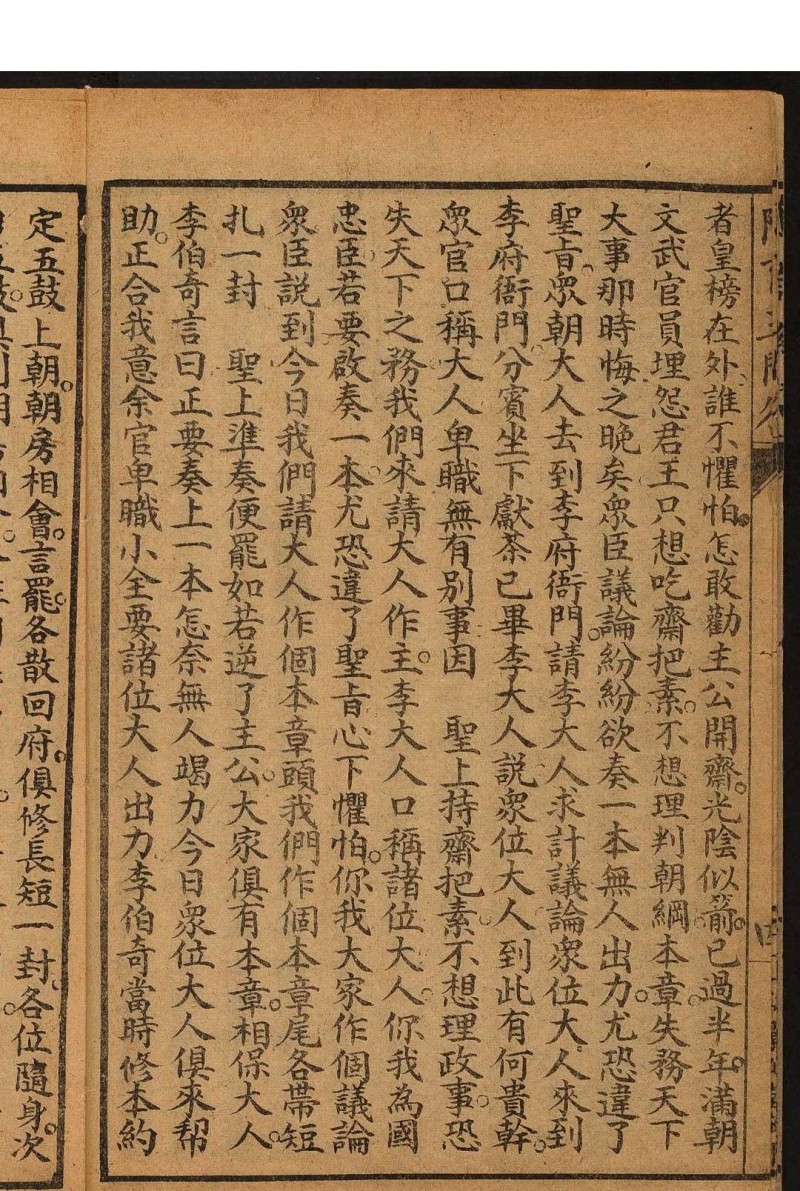 者皇榜在外誰不懼怕。怎敢勸主公開齋。光陰似箭。已過半年。滿朝
文武官員埋怨君王只想吃齋把素。不想理判朝綱本章失務天下
大事那時悔之晚矣眾臣議論紛紛欲奏一本無人出力。尤恐違了
聖旨。眾朝大人去到李府衙門。請李大人求計議論眾位大人來到
李府衙門分賓坐下獻茶已畢李大人說眾位大人到此有何貴幹。
眾官口稱大人卑職無有別事因　聖上持齋把素。不想理政事。恐
失天下之務我們來請大人作主。李大人口稱諸位大人。你我為國
忠臣。若要啟奏一本。尤恐違了聖旨心下懼怕。你我大家作個議論
眾臣說到今日我們請大人作個本章頭我們作個本章尾各帶短
扎一封　聖上準奏便罷如若逆了主公。大家俱有本章。相保大人。
李伯奇言曰正要奏上一本怎奈無人竭力今日眾位大人俱來帮
助。正合我意余官卑職小全要諸位大人出力李伯奇當時修本約
定五鼓上朝。朝房相會。言罷。各散回府。俱修長短一封。各位隨身。次